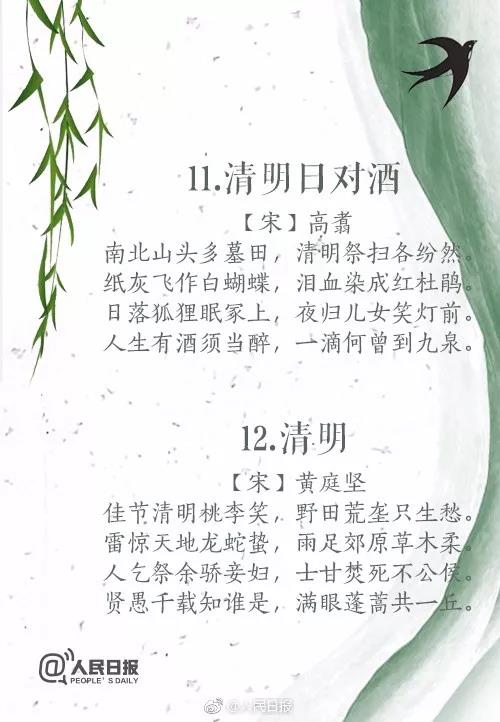 11.清明日对酒
【宋】高翥
南北山头多墓田，清明祭扫各纷然。
纸灰飞作白蝴蝶，泪血染成红杜鹃。
日落狐狸眠冢上，夜归儿女笑灯前。
人生有酒须当醉，一滴何曾到九泉。
12.清明
【宋】黄庭坚
佳节清明桃李笑，野田荒垄只生愁。
雷惊天地龙蛇蛰，雨足郊原草木柔。
人乞祭余骄妾妇，士甘焚死不公侯。
贤愚千载知谁是，满眼蓬蒿共一丘。
@人民日报
PEOPLE'S DAILY
@人民日报